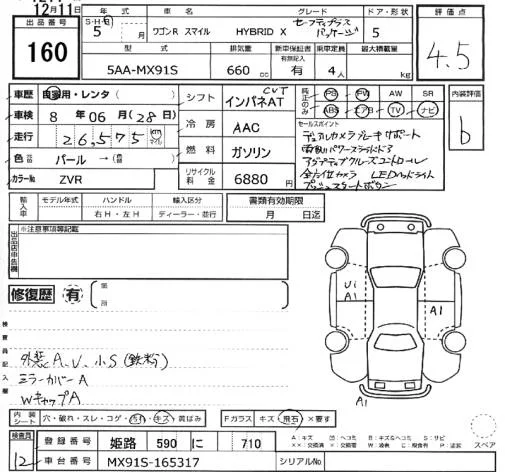 12月11日
12月11日
出品番号
160
年式
S・H・R
5 月
車名
ワゴンR スマイル
グレード
HYBRID X
セーフティプラス
パッケージ
ドア・形状
5
評価点
4.5
型式
5AA-MX91S
排気量
660 cc
新車保証書
有無記入
有
乗車定員
4人
最大積載量
kg
車歴
自家用・レンタ( )
車検
8年 06月 (28日)
走行
26,575 km
マイル
色
パール → (
カラーNo
ZVR
シフト
CVT
インパネAT
冷房
AAC
燃料
ガソリン
リサイクル
料金
6880 円
純正のみ
PS PW AW SR
ABS エアB TV ナビ
セールスポイント
デュアルカメラブレーキサポート
両側パワースライドドア
アダプティブクルーズコントロール
全方位カメラ LEDヘッドライト
プッシュスタートボタン
内装評価
b
輸入車
モデル年式
ハンドル
右H・左H
輸入区分
ディーラー・並行
書類有効期限
月 日迄
出品店申告欄
※注意事項等記載
修復歴
有
箇所
検査員記入欄
外装A、U、小S(鉄粉)
ミラーカバーA
WキャップA
U1
A1
A1
A1
内装
シート
穴・破れ・スレ・コゲ・汚れ・キズ・黄ばみ
Fガラス
キズ・飛石・×要す
検査員
12
登録番号
姫路 590 に 710
車台番号
MX91S-165317
シリアルNo
A:キズ
スペア